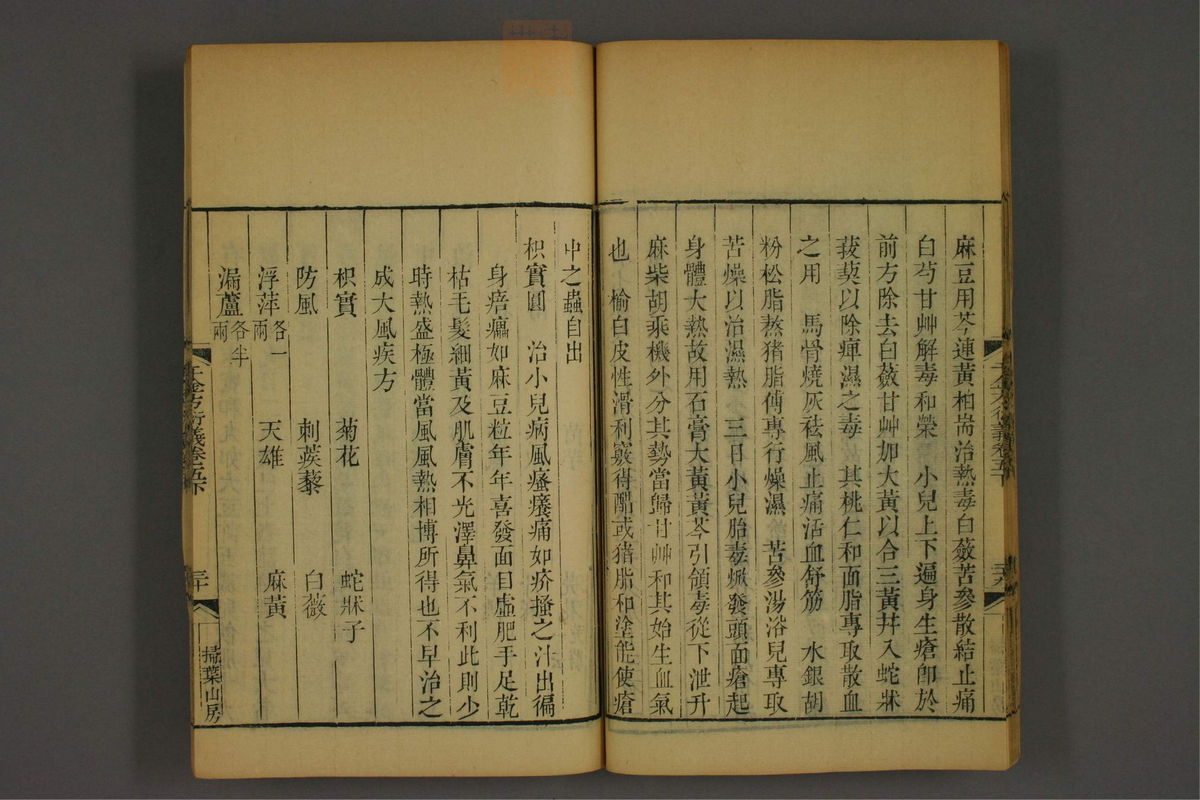 麻豆用芩連黃柏耑治熱毒白蘞苦參散結止痛
白芍甘艸解毒和榮　小兒上下遍身生瘡卽於
前方除去白蘞甘艸加大黃以合三黃幷入蛇牀
菝葜以除痺濕之毒　其桃仁和面脂專取散血
之用　馬骨燒灰祛風止痛活血舒筋　水銀胡
粉松脂蒸猪脂傅專行燥濕　苦參湯浴兒專取
苦燥以治濕熱　三日小兒胎毒焮發頭面瘡起
身體大熱故用石膏大黃黃芩引領毒從下泄升
麻柴胡乘機外分其勢當歸甘艸和其始生血氣
也　榆白皮性滑利竅得醋或猪脂和塗能使瘡
千金方衍義卷五下
中之蟲自出
枳實圓　治小兒病風瘙癢痛如疥搔之汁出徧
身痦㿔如麻豆粒年年喜發面目虛肥手足乾
枯毛髮細黃及肌膚不光澤鼻氣不利此則少
時熱盛極體當風風熱相博所得也不早治之
成大風疾方
枳實　菊花　蛇牀子
防風　刺蒺藜　白薇
浮萍各一兩　天雄　麻黃
漏蘆各半兩
千金方衍義卷五下　三十　掃葉山房